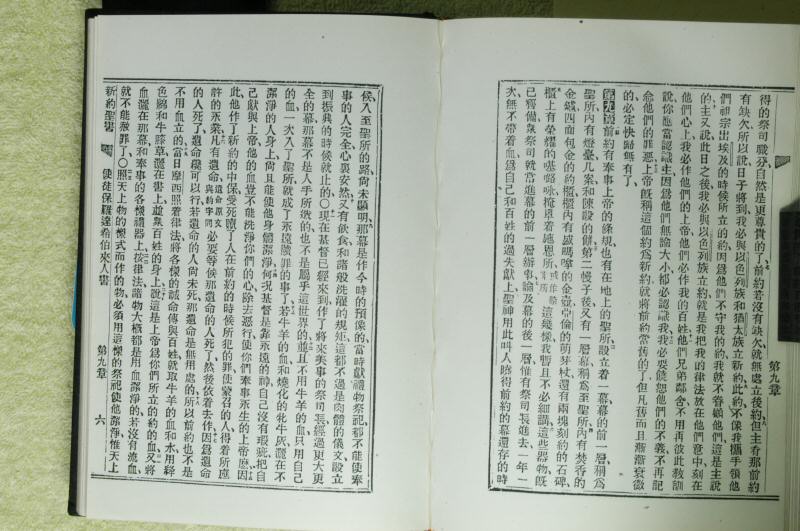 得的祭司職分自然是更尊貴的了前約若沒有缺欠就無處立後約但主看那前約
有缺欠所以說日子將到我必與以色列族和猶太族立新約此約不像我攜手領他
們祖宗出埃及的時候所立的約因爲他們不守我的約我就不眷顧他們這是主說
的主又說此日之後我必與以色列族立約就是我把我的律法放在他們意中刻在
他們心上我必作他們的上帝他們必作我的百姓他們兄弟鄰舍不用再彼此教訓
說你應當認識主因爲他們無論大小都必認識我我必要饒恕他們的不義不再記
念他們的罪惡上帝旣稱這個約爲新約就將前約當舊的了但凡舊而且漸漸衰微
的必定快歸無有了
第九章 前約有奉事上帝的條規也有在地上的聖所設立着一幕幕的前一層稱爲
聖所內有燈臺几案和陳設的餠第二幔子後又有一層幕稱爲至聖所內有焚香的
金爐四面包金的約櫃櫃內有盛嗎嗱的金壺亞倫的萌芽杖還有兩塊刻約的石碑
櫃上有榮耀的𠼻𡀔咏掩罩着施恩所這幾樣我暫且不必細講這些器物旣
已齊備衆祭司就常進幕的前一層辦事論及幕的後一層惟有祭司長進去一年一
次無不帶着血爲自己和百姓的過失獻上聖神用此叫人曉得前約的幕還存的時
第九章
候入至聖所的路尙未顯明那幕是作今時的預像的當時獻禮物祭祀都不能使奉
事的人完全心裏安然又有飮食和諸般洗濯的規矩這都不過是肉體的儀文設立
到振興的時候就止的〇現在基督已經來到作了將來美事的祭司長經過更大更
全的幕那幕不是人手所造的也不是屬乎這世界的並且不用牛羊的血只用自己
的血一次入了聖所就成了永遠贖罪的事了若牛羊的血和燒化的牝牛灰灑在不
潔淨的人身上尙且能使他身體潔淨何况基督是靠永遠的神自己沒有瑕疵把自
己獻與上帝他的血豈不能洗淨你們的心除去惡行使你們奉事永生的上帝麽因
此他作了新約的中保受死贖了人在前約的時候所犯的罪使蒙召的人得着所應
許的永業凡有遺命遺命原文與約字同必要等候那遺命的人死了然後依着去作因爲遺命
的人死了遺命纔可以行若遺命的人尙未死那遺命是無用處的所以前約也不是
不用血立的當日摩西照着律法將各樣的誡命傳與百姓就取牛羊的血和水用硃
色絨和牛膝草灑在書上並衆百姓的身上說這是上帝爲你們所立的約的血又將
血灑在那幕和奉事的各樣禮器上按律法諸物大槪都是用血潔淨的若沒有流血
就不能赦罪了〇照天上物的樣式而作的物必須用這樣的祭祀使他潔淨惟天上
新約聖書 使徒保羅達希伯來人書 第九章 六